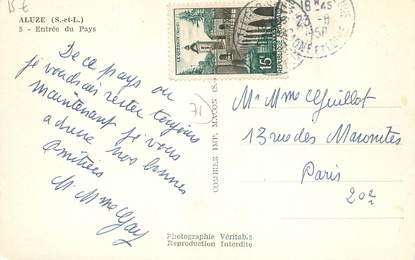 15€
ALUZE (S.-et-L.)
5 - Entrée du Pays
De ce pays ou
je voudrais rester toujours
maintenant je vous
adresse nos bonnes
amitiés
M. Mme Gay
71
COMBIER IMP. MACON (S.-
15F
18 H 45
23 - 8
M. Mme Guillot
13 rue des Maronites
Paris
20e
Photographie Véritable
Reproduction Interdite